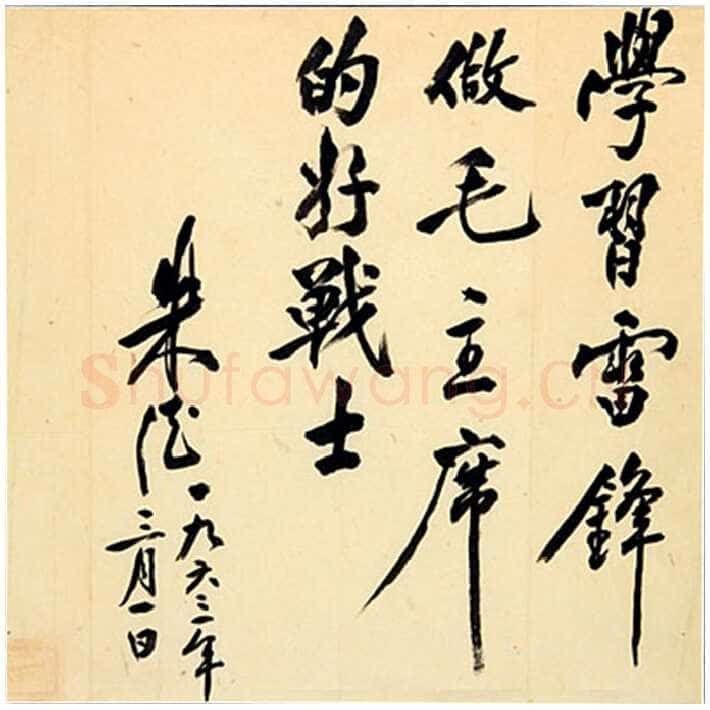 學習雷鋒
做毛主席
的好戰士
朱德
一九六三年
三月一日
Shufawang.cn